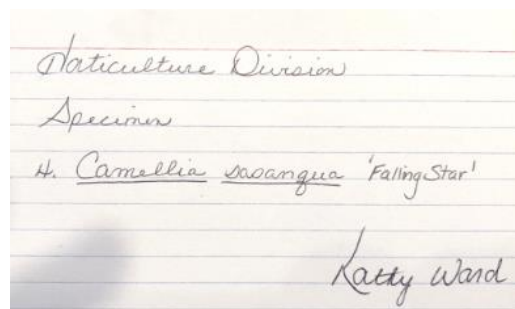 Horticulture Division
Specimen
4. Camellia sasanqua 'Falling Star'
Kathy Ward